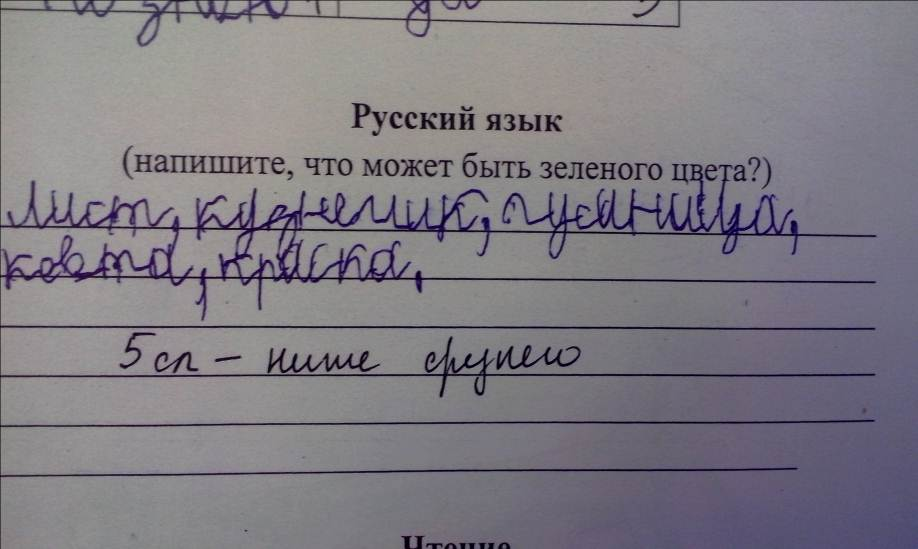 Русский язык
(напишите, что может быть зеленого цвета?)
лист, кузнечик, гусаница,
кофта, краска,
5 сл – ниже среднего
Чтение